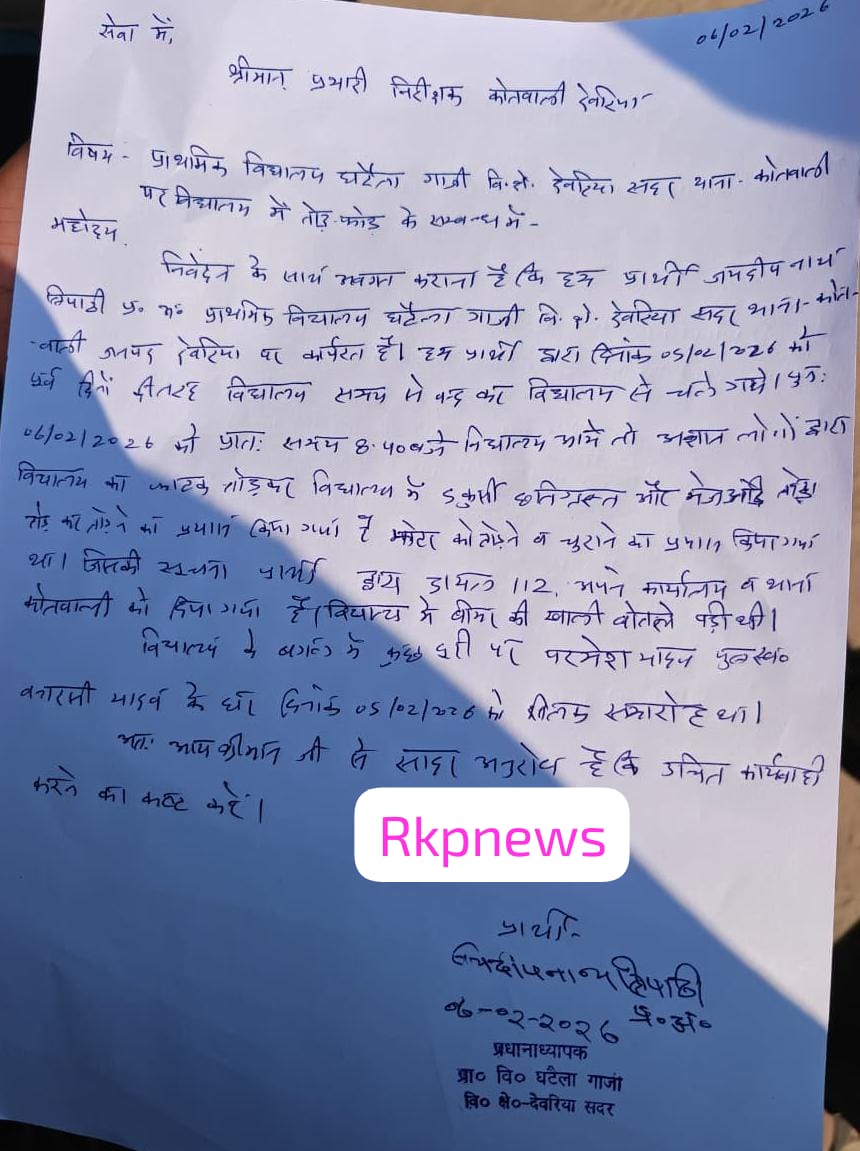 06/02/2026
सेवा में,
श्रीमान् प्रभारी निरीक्षक कोतवाली देवरिया
विषय - प्राथमिक विद्यालय घटैला गाजी वि.क्षे. देवरिया सदर थाना - कोतवाली
पर विद्यालय में तोड़-फोड़ के सम्बन्ध में -
महोदय,
निवेदन के साथ अवगत कराना है कि हम प्रार्थी जयदीप नाथ
त्रिपाठी प्र० अ० प्राथमिक विद्यालय घटैला गाजी वि. क्षे. देवरिया सदर थाना - कोत-
-वाली जनपद देवरिया पर कार्यरत है। हम प्रार्थी द्वारा दिनांक 05/02/2026 को
पूर्व दिनों की तरह विद्यालय समय से बन्द कर विद्यालय से चले गये। पुन:
06/02/2026 को प्रात: समय 8.40 बजे विद्यालय आये तो अज्ञात लोगों द्वारा
विद्यालय का फाटक तोड़कर विद्यालय में कुर्सी क्षतिग्रस्त और मेज आदि
तोड़ कर तोड़ने का प्रयास किया गया है मोटर को तोड़ने व चुराने का प्रयास किया गया
था। जिसकी सूचना प्रार्थी द्वारा डायल 112, अपने कार्यालय व थाना
कोतवाली को दिया गया है। विद्यालय में बीयर की खाली बोतले पड़ी थी।
विद्यालय के बगल में कुछ दूरी पर परमेश यादव पुत्र स्व०
यादव के घर दिनांक 05/02/2026 को तिलक समारोह था।
अत: आप श्रीमान जी से सादर अनुरोध है कि उचित कार्यवाही
करने का कष्ट करें।
Rkpnews
प्रार्थी -
जयदीपनाथ त्रिपाठी
06-02-2026 प्र०अ०
प्रधानाध्यापक
प्रा० वि० घटैला गाजी
वि० क्षे०-देवरिया सदर